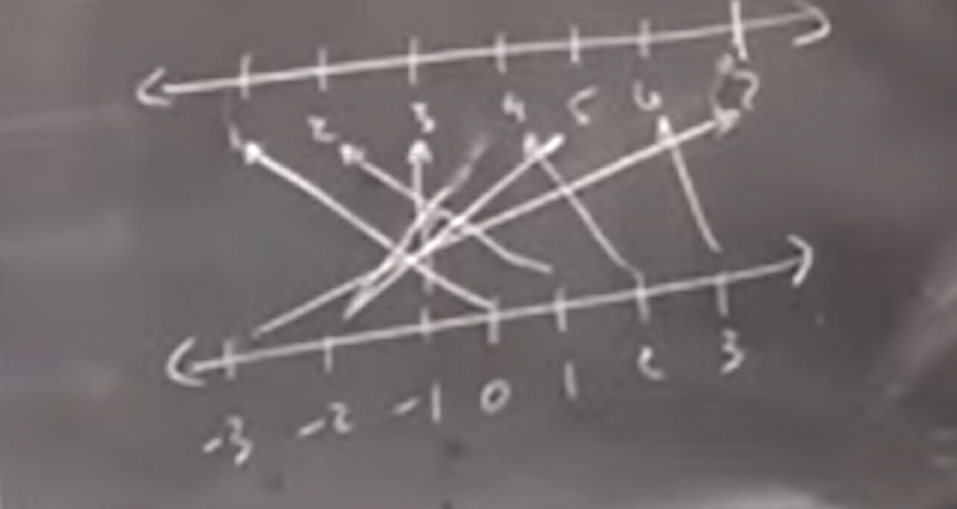 2 3 4 5 6 7
-3 -2 -1 0 1 2 3